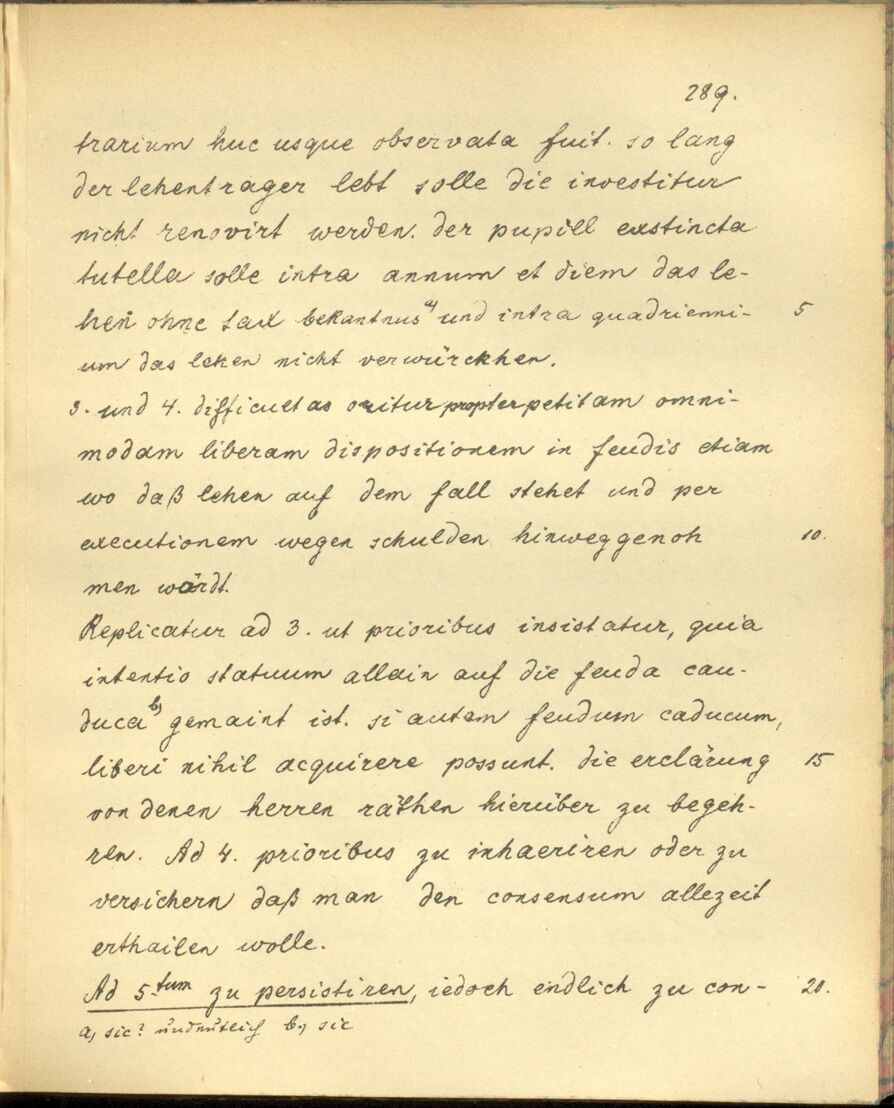 289.
trarium huc usque observata fuit. so lang
der lehentrager lebt solle die investitur
nicht renovirt werden. der pupill exstincta
tutella solle intra annum et diem das le-
hen ohne tax bekantnus a) und intra quadrienni- 5
um das lehen nicht verwürckhen.
3. und 4. difficultas oritur propter petitam omni-
modam liberam dispositionem in feudis etiam
wo daß lehen auf dem fall stehet und per
executionem wegen schulden hinweggenoh 10.
men würdt.
Replicatur ad 3. ut prioribus insistatur, quia
intentio statuum allain auf die feuda cau-
duca b) gemaint ist. si autem feudum caducum,
liberi nihil acquirere possunt. die erclärung 15
von denen herren räthen hierüber zu begeh-
ren. Ad 4. prioribus zu inhaeriren oder zu
versichern daß man den consensum allezeit
erthailen wolle.
Ad 5tum zu persistiren, iedoch endlich zu con- 20.
a) sic? undeutlich b) sic